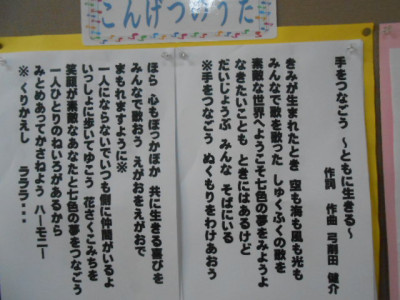 こんげつのうた
手をつなごう　～ともに生きる～
作詞　作曲　弓削田　健介
きみが生まれたとき　空も海も風も光も
みんなで歌を歌った　しゅくふくの歌を
素敵な世界へようこそ七色の夢をみようよ
なきたいことも　ときにはあるけど
だいじょうぶ　みんな　そばにいる
※手をつなごう　ぬくもりをわけあおう
ほら　心もぽっかぽか　共に生きる喜びを
みんなで歌おう　えがおをえがおで
まもれますように※
一人にならないでいつも側に仲間がいるよ
いっしょに歩いてゆこう　花さくこみちを
笑顔が素敵なあなたと七色の夢をつなごう
一人ひとりのねいろがあるから
みとめあってかさねよう　ハーモニー
※くりかえし　ラララ・・・